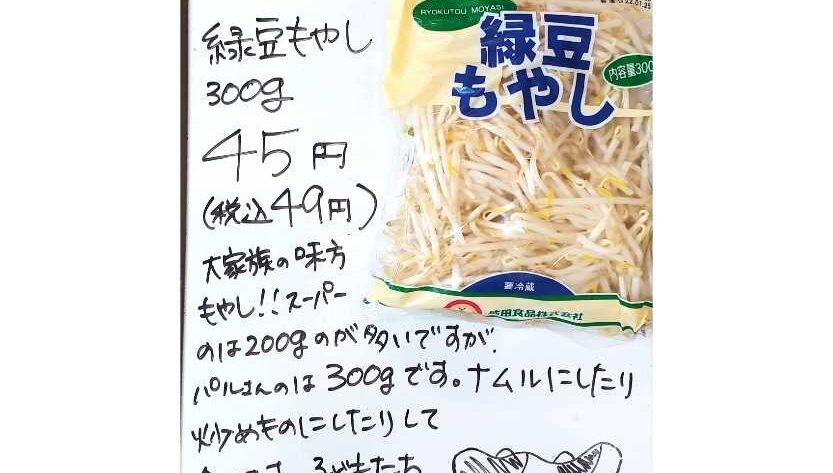 緑豆もやし
300g
45円
(税込49円)
大家族の味方
もやし!!スーパー
のは200gのが多いですが、
パルさんのは300gです。ナムルにしたり
炒めものにしたりして
RYOKUTOU MOYASI
緑豆
もやし
内容量300
要冷蔵
田食品株式会社